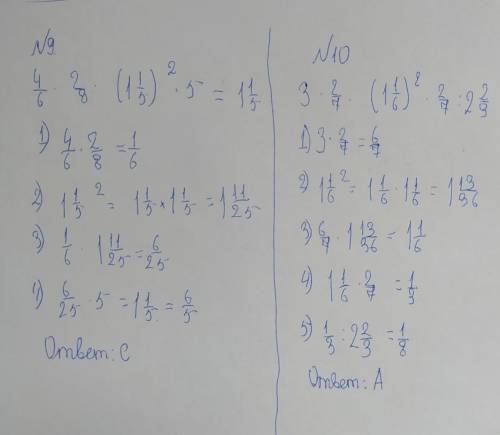 №9
4/6 · 2/8 · (1 1/5)² · 5 = 1 1/5
1) 4/6 · 2/8 = 1/6
2) 1 1/5² = 1 1/5 × 1 1/5 = 1 11/25
3) 1/6 · 1 11/25 = 6/25
4) 6/25 · 5 = 1 1/5 = 6/5
Ответ: С
№10
3 · 2/7 · (1 1/6)² · 2/7 : 2 2/3
1) 3 · 2/7 = 6/7
2) 1 1/6² = 1 1/6 · 1 1/6 = 1 13/36
3) 6/7 · 1 13/36 = 1 1/6
4) 1 1/6 · 2/7 = 1/3
5) 1/3 : 2 2/3 = 1/8
Ответ: А